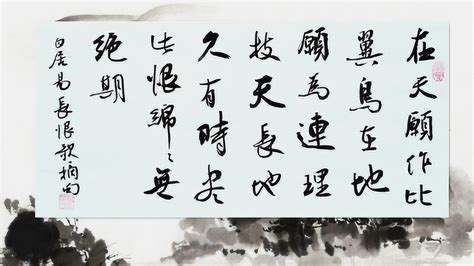 在天願作比
翼鳥在地
願為連理
枝天長地
久有時尽
此恨綿々無
絕期
白居易長恨歌摘句